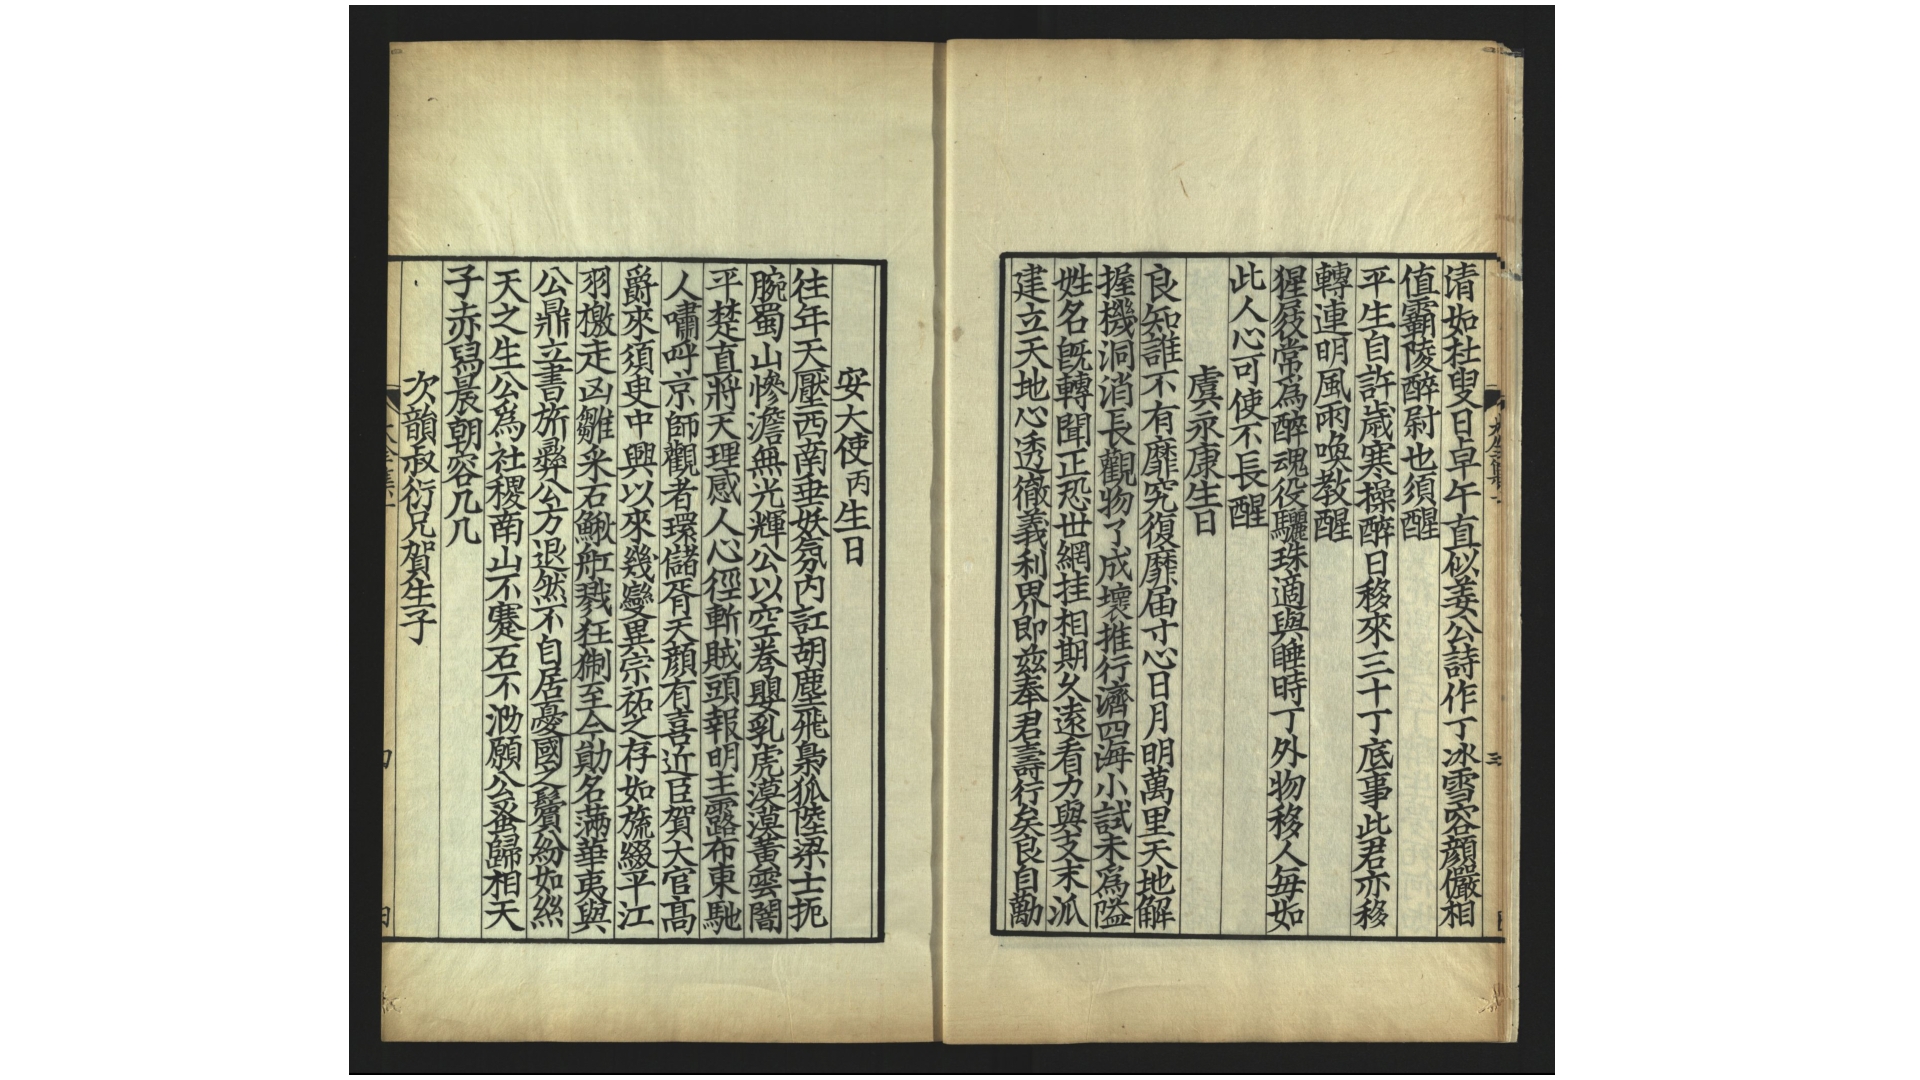 清如杜叟日卓午直似姜公詩作丁冰雪容顏儼相
值霸陵醉尉也須醒
平生自許歲寒操醉日移來三十丁底事此君亦移
轉連明風雨喚教醒
猩屐常爲醉魂役驪珠適與睡時丁外物移人每如
此人心可使不長醒
虞永康生日
良知誰不有靡究復靡届寸心日月明萬里天地解
握機洞消長觀物了成壞推行濟四海小試未爲隘
姓名旣轉聞正恐世網挂相期久遠看力與支末派
建立天地心透徹義利界即兹奉君壽行矣良自勱
安大使丙生日
往年天壓西南垂妖氛内訌胡塵飛梟狐陸梁士扼
腕蜀山慘澹無光輝公以空拳嬰乳虎漠漠黃雲闇
平楚直將天理感人心徑斬賊頭報明主露布東馳
人嘯呼京師觀者環儲胥天顏有喜近臣賀大官高
爵來須臾中興以來幾變異宗祏之存如旒綴平江
羽檄走凶雛采石鰍舡戮狂猘至今勛名滿華夷與
公鼎立書旂彝公方退然不自居憂國之鬢紛如絲
天之生公爲社稷南山不騫石不泐願公蚤歸相天
子赤舄晨朝容几几
次韻叔衍兄賀生子